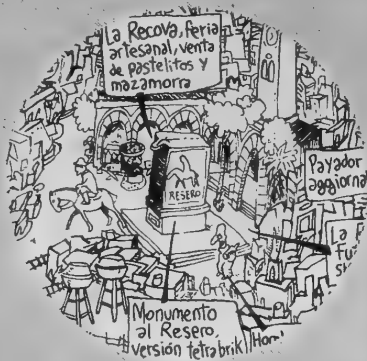 La Recova, feria
artesanal, venta
de pastelitos y
mazamorra
RESERO
Payador
aggiorna
La
Monumento
al Resero,
versión tetrabrik